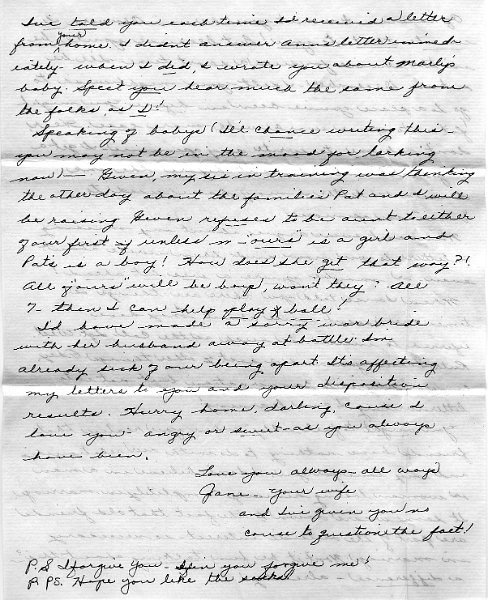 I've told you each time I'd received a letter
from your home. I didn't answer Ann's letter immed-
iately - when I did, I wrote you about Marly's
baby. 'Spect you hear much the same from
the folks as I!
Speaking of babys (I'll chance writing this -
you may not be in the mood for larking
now) - Gwen, my sis in training was thinking
the other day about the families Pat and I will
be raising. Gwen refuses to be aunt to either
of our first unless "ours" is a girl and
Pat's is a boy! How does she get that way?!
All "ours" will be boys, won't they? All
7 - then I can help play ball!
I'd have made a sorry war bride
with her husband away at battle. I'm
already sick of our being apart. It's affecting
my letters to you and your disposition
results. Hurry home, darling, cause I
love you - angry or sweet - as you always
have been.
Love you always - all ways
Jane - your wife
and I've given you no
cause to question the fact!
P.S. I forgive you - you forgive me!
P.PS. Hope you like the socks